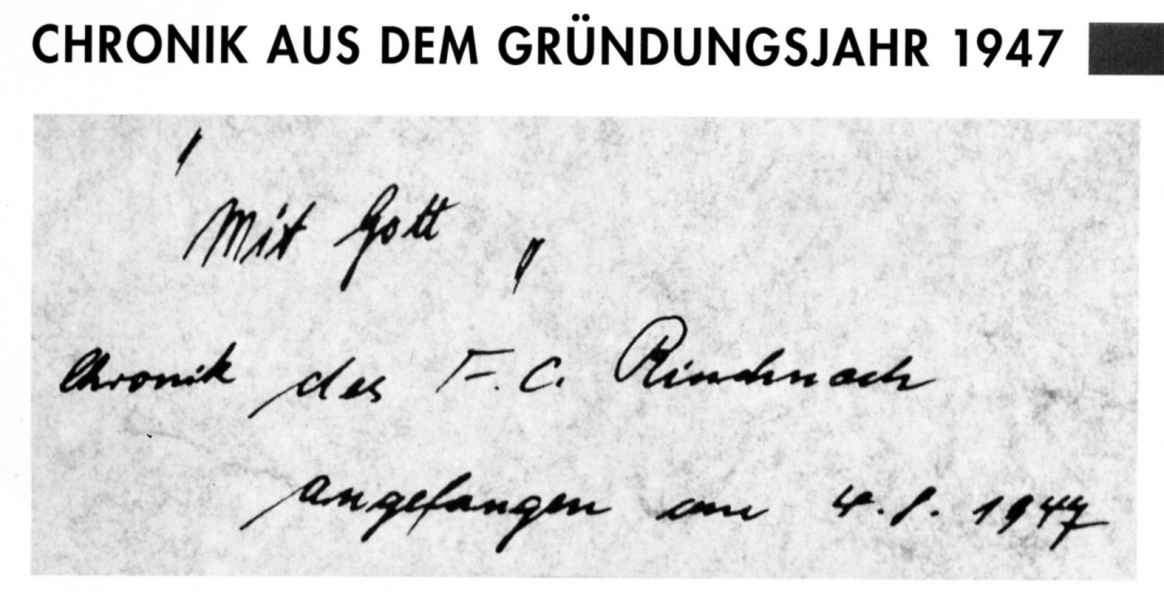 CHRONIK AUS DEM GRÜNDUNGSJAHR 1947
"Mit Gott"
Chronik des F.C. Rinchnach
angefangen am 4.8.1947